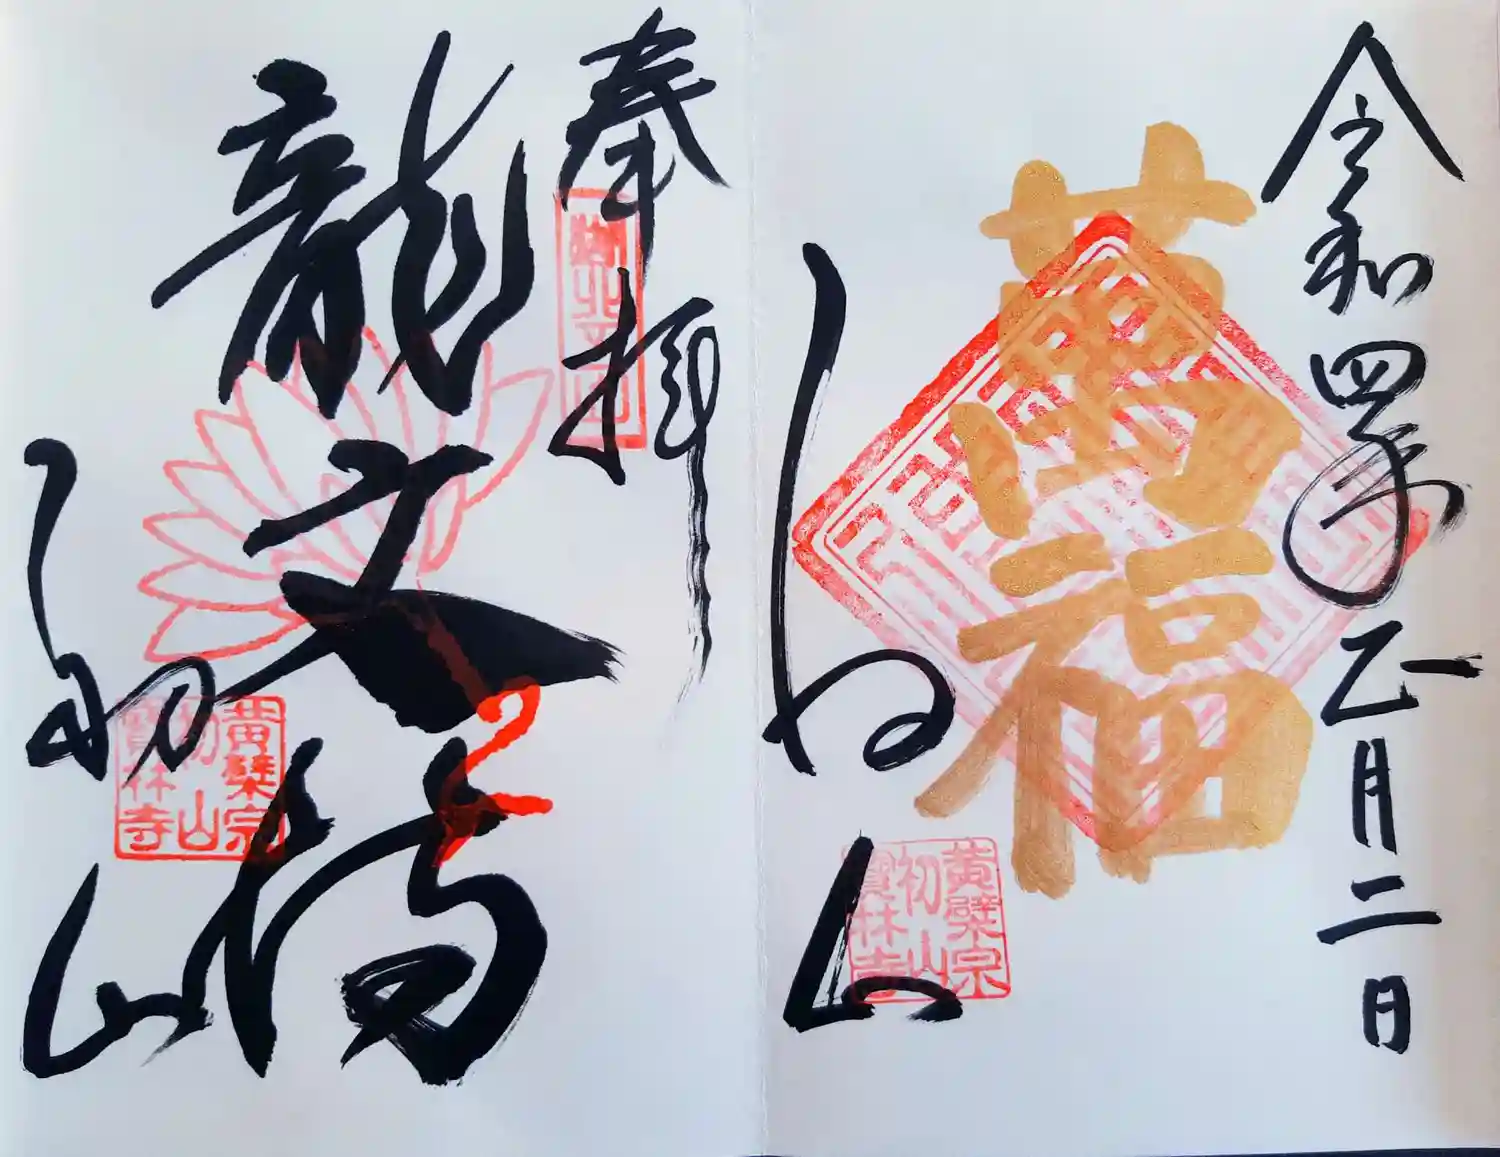 令和四年正月二日
萬福
初山
黄檗宗
初山
寶林寺
奉拝
龍文
初山
黄檗宗
初山
寶林寺